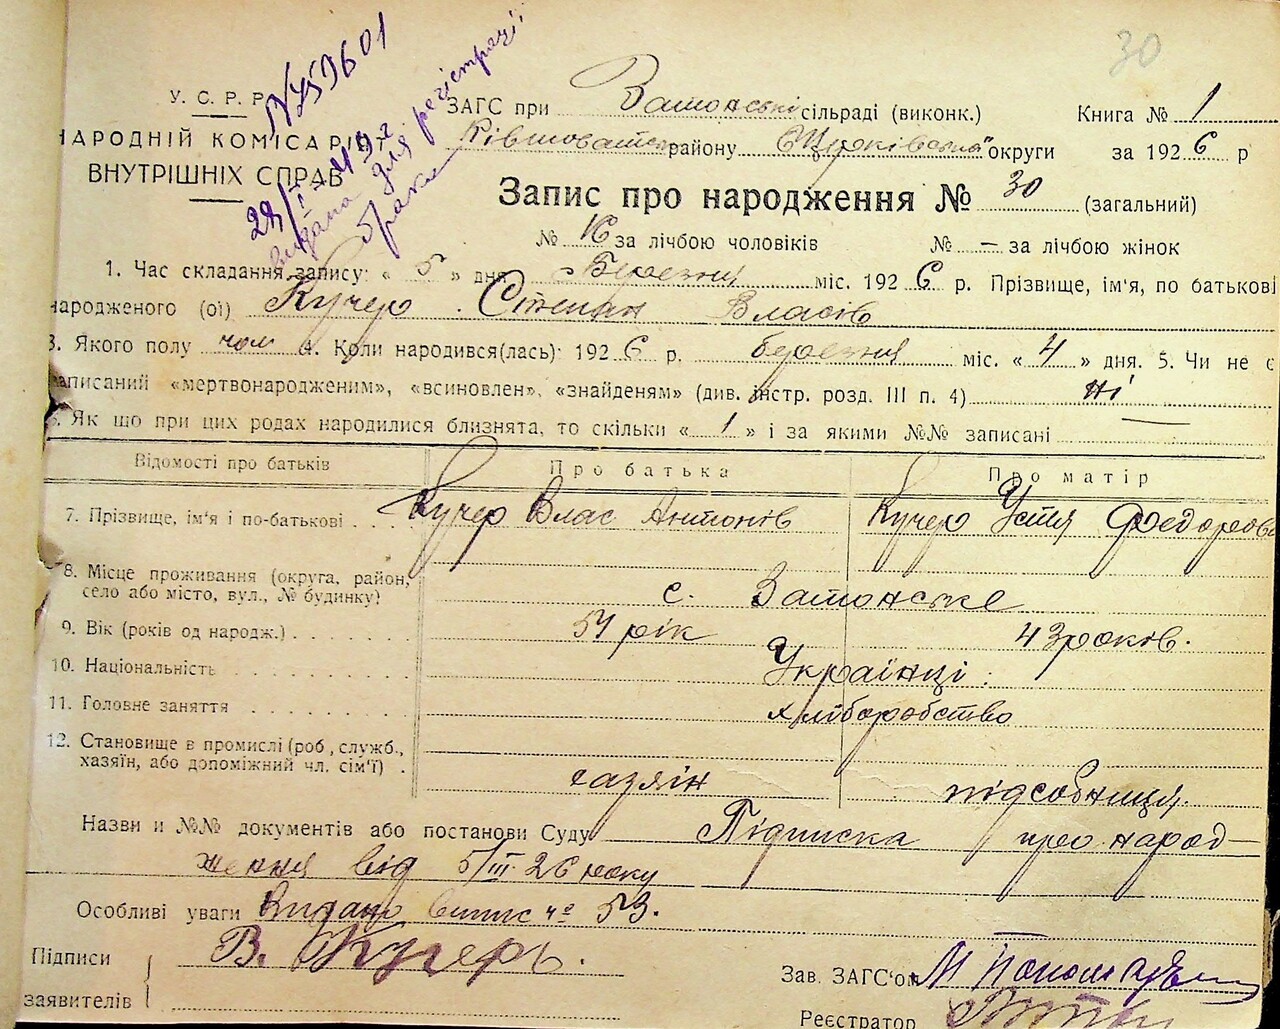 30
№ 759601
29/I-49 г
видана для регістрації
брака
У. С. Р. Р.
НАРОДНІЙ КОМІСАРІЯТ
ВНУТРІШНІХ СПРАВ
ЗАГС при Затонські сільраді (виконк.) Книга № 1
Ківшоватськ району БЦерківської округи за 1926 р
Запис про народження № 30 (загальний)
№ 16 за лічбою чоловіків № — за лічбою жінок
1. Час складання запису: « 5 » дня Березня міс. 1926 р. Прізвище, ім'я, по батькові
народженого (ої) Кучер Степан Власів
3. Якого полу чол 4. Коли народився(лась): 1926 р. березня міс. « 4 » дня. 5. Чи не є
записаний «мертвонародженим», «всиновлен», «знайденям» (див. інстр. розд. III п. 4) ні
6. Як що при цих родах народилися близнята, то скільки « 1 » і за якими №№ записані —
Відомості про батьків Про батька Про матір
7. Прізвище, ім'я і по-батькові Кучер Влас Антонів Кучер Устя Федорова
8. Місце проживання (округа, район,
село або місто, вул., № будинку) с. Затонське
9. Вік (років од народж.) 51 рік 43 років.
10. Національність Українці.
11. Головне заняття хліборобство
12. Становище в промислі (роб., служб.,
хазяїн, або допоміжний чл. сім'ї) хазяін підсобниця.
Назви и №№ документів або постанови Суду Підписка про народ-
ження від 5/III 26 року
Особливі уваги Видано витис № 53.
Підписи В. Кучерь.
заявителів
Зав. ЗАГС'ом М Пономар
Реєстратор